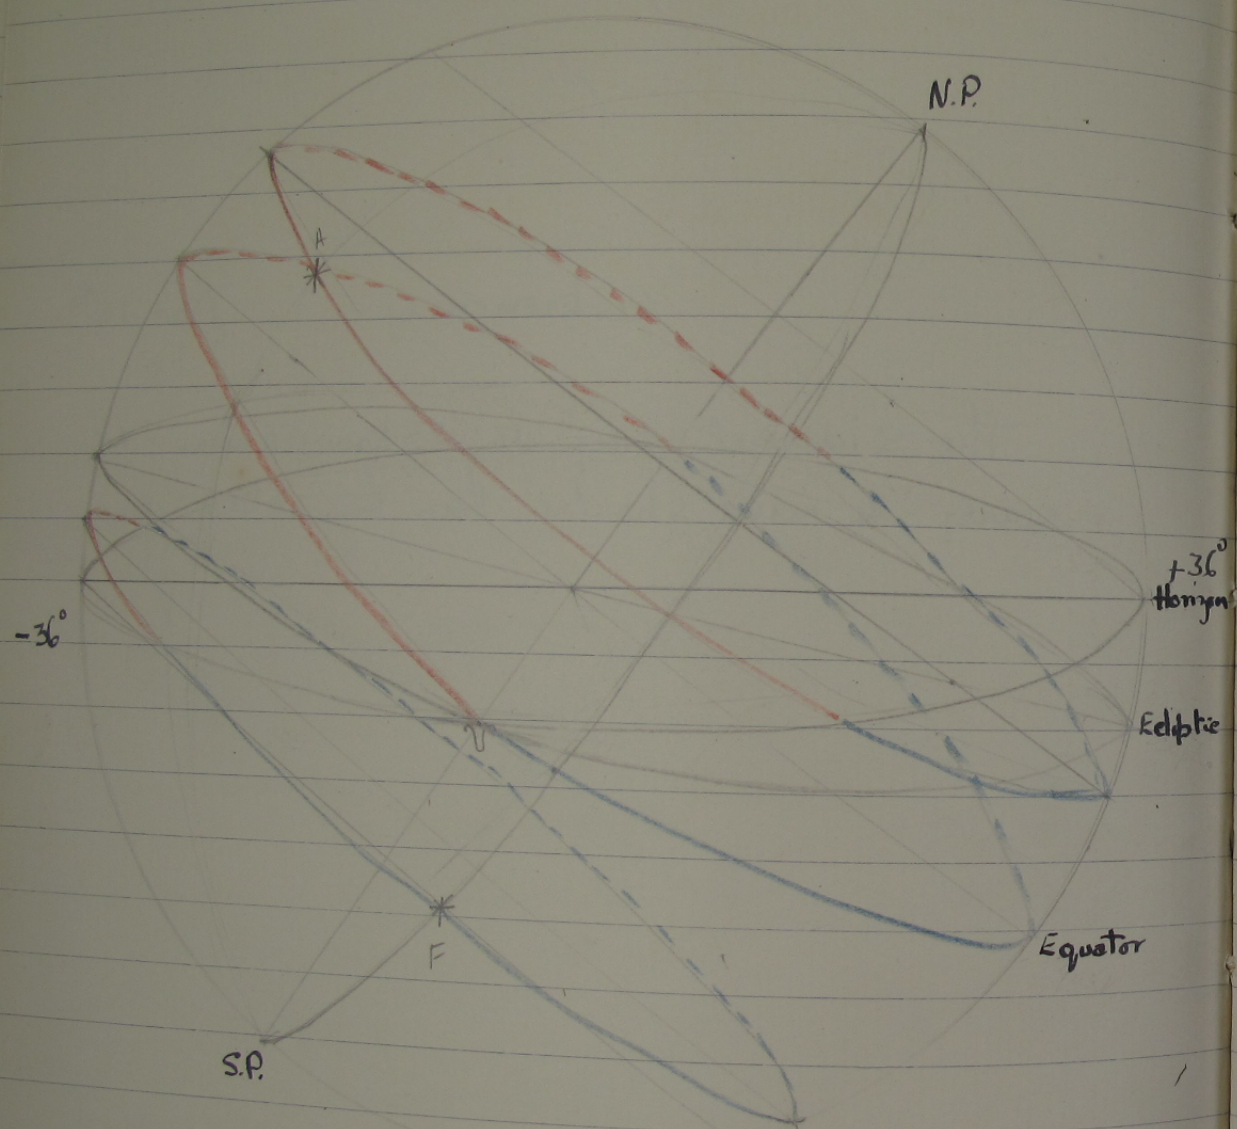 N.P.
A
+36°
Horizon
-36°
Ecliptic
♈
F
Equator
S.P.